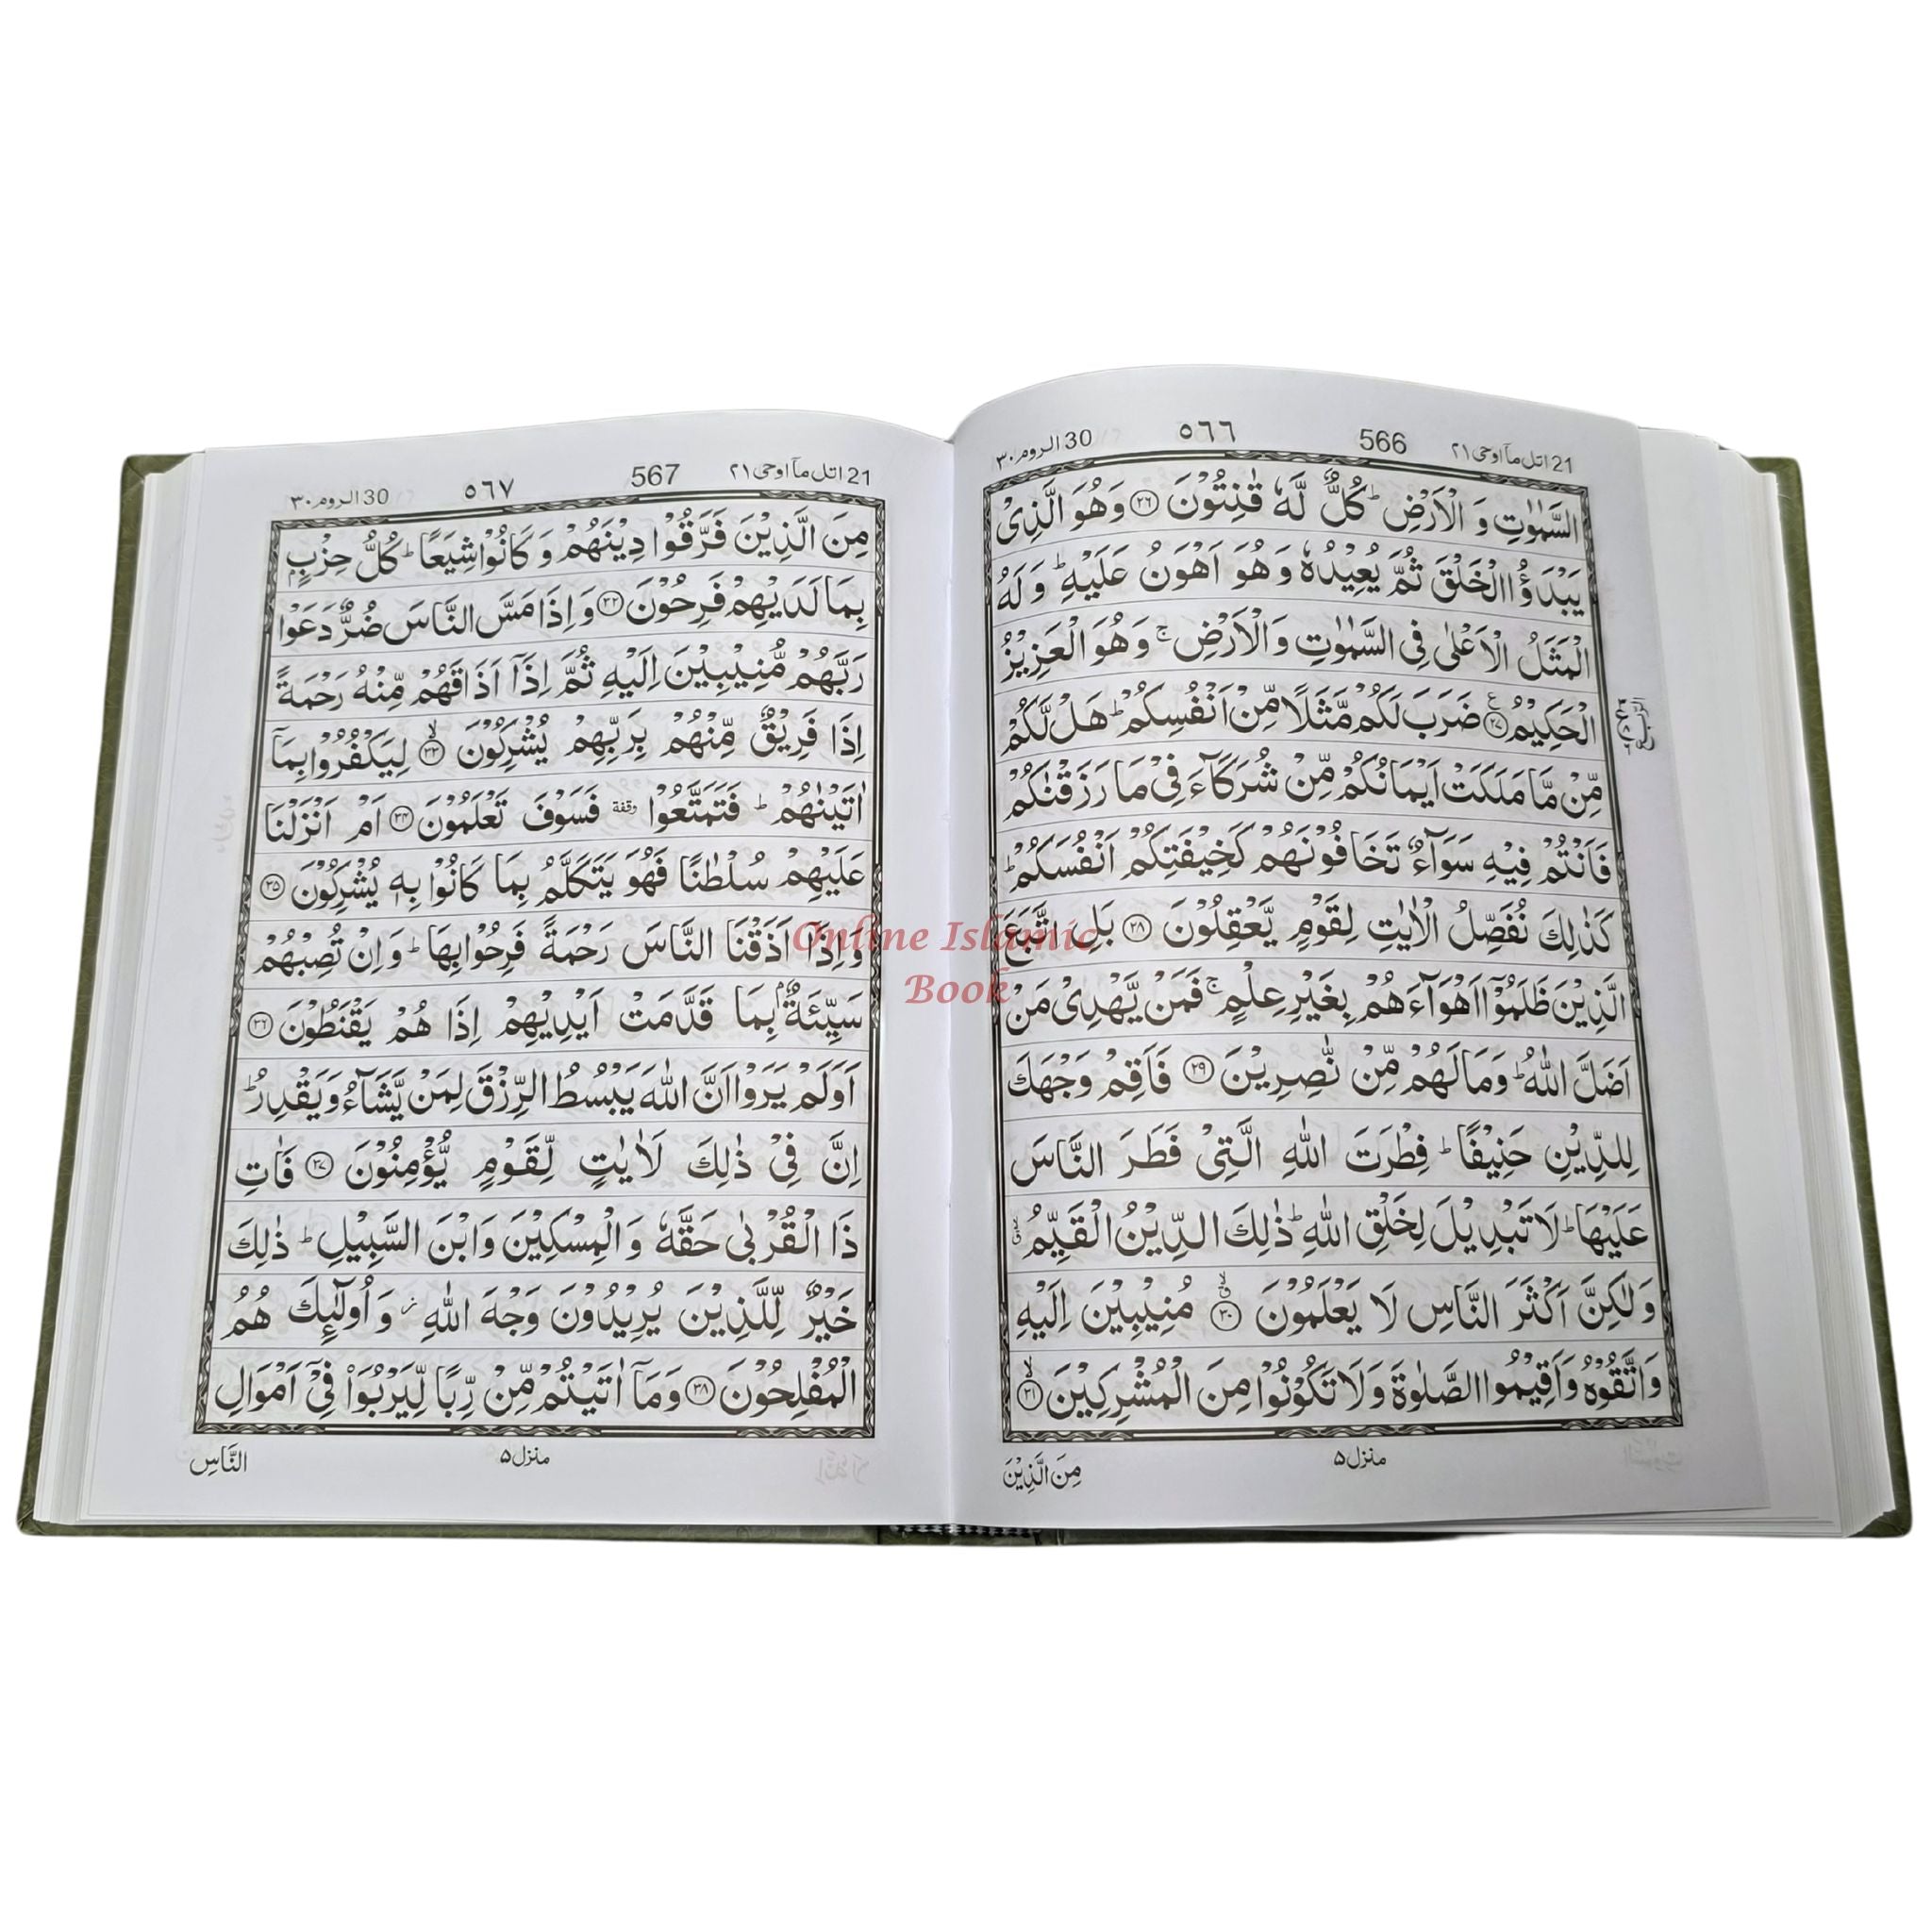 21 اتل مآ اوحی ٢١ 566 ٥٦٦ 30 الروم ٣٠
السَّمٰوٰتِ وَ الْاَرْضِ ؕ كُلٌّ لَّهٗ قٰنِتُوْنَ ﴿٢٦﴾ وَهُوَ الَّذِیْ
یَبْدَؤُا الْخَلْقَ ثُمَّ یُعِیْدُهٗ وَهُوَ اَهْوَنُ عَلَیْهِ ؕ وَلَهُ
الْمَثَلُ الْاَعْلٰی فِی السَّمٰوٰتِ وَالْاَرْضِ ۚ وَهُوَ الْعَزِیْزُ
الْحَكِیْمُ ﴿٢٧﴾ ضَرَبَ لَكُمْ مَّثَلًا مِّنْ اَنْفُسِكُمْ ؕ هَلْ لَّكُمْ
مِّنْ مَّا مَلَكَتْ اَیْمَانُكُمْ مِّنْ شُرَكَآءَ فِیْ مَا رَزَقْنٰكُمْ
فَاَنْتُمْ فِیْهِ سَوَآءٌ تَخَافُوْنَهُمْ كَخِیْفَتِكُمْ اَنْفُسَكُمْ ؕ
كَذٰلِكَ نُفَصِّلُ الْاٰیٰتِ لِقَوْمٍ یَّعْقِلُوْنَ ﴿٢٨﴾ بَلِ اتَّبَعَ
الَّذِیْنَ ظَلَمُوْۤا اَهْوَآءَهُمْ بِغَیْرِ عِلْمٍ ۚ فَمَنْ یَّهْدِیْ مَنْ
اَضَلَّ اللّٰهُ ؕ وَمَا لَهُمْ مِّنْ نّٰصِرِیْنَ ﴿٢٩﴾ فَاَقِمْ وَجْهَكَ
لِلدِّیْنِ حَنِیْفًا ؕ فِطْرَتَ اللّٰهِ الَّتِیْ فَطَرَ النَّاسَ
عَلَیْهَا ؕ لَا تَبْدِیْلَ لِخَلْقِ اللّٰهِ ؕ ذٰلِكَ الدِّیْنُ الْقَیِّمُ
وَلٰكِنَّ اَكْثَرَ النَّاسِ لَا یَعْلَمُوْنَ ﴿٣٠﴾ مُنِیْبِیْنَ اِلَیْهِ
وَاتَّقُوْهُ وَاَقِیْمُوا الصَّلٰوةَ وَلَا تَكُوْنُوْا مِنَ الْمُشْرِكِیْنَ ﴿٣١﴾
منزل ۵
مِنَ الَّذِیْنَ
21 اتل مآ اوحی ٢١ 567 ٥٦٧ 30 الروم ٣٠
مِنَ الَّذِیْنَ فَرَّقُوْا دِیْنَهُمْ وَكَانُوْا شِیَعًا ؕ كُلُّ حِزْبٍۭ
بِمَا لَدَیْهِمْ فَرِحُوْنَ ﴿٣٢﴾ وَاِذَا مَسَّ النَّاسَ ضُرٌّ دَعَوْا
رَبَّهُمْ مُّنِیْبِیْنَ اِلَیْهِ ثُمَّ اِذَاۤ اَذَاقَهُمْ مِّنْهُ رَحْمَةً
اِذَا فَرِیْقٌ مِّنْهُمْ بِرَبِّهِمْ یُشْرِكُوْنَ ﴿٣٣﴾ۙ لِیَكْفُرُوْا بِمَاۤ
اٰتَیْنٰهُمْ ؕ فَتَمَتَّعُوْا وقفة فَسَوْفَ تَعْلَمُوْنَ ﴿٣٤﴾ اَمْ اَنْزَلْنَا
عَلَیْهِمْ سُلْطٰنًا فَهُوَ یَتَكَلَّمُ بِمَا كَانُوْا بِهٖ یُشْرِكُوْنَ ﴿٣٥﴾
وَاِذَاۤ اَذَقْنَا النَّاسَ رَحْمَةً فَرِحُوْا بِهَا ؕ وَاِنْ تُصِبْهُمْ
سَیِّئَةٌۢ بِمَا قَدَّمَتْ اَیْدِیْهِمْ اِذَا هُمْ یَقْنَطُوْنَ ﴿٣٦﴾
اَوَلَمْ یَرَوْا اَنَّ اللّٰهَ یَبْسُطُ الرِّزْقَ لِمَنْ یَّشَآءُ وَیَقْدِرُ ؕ
اِنَّ فِیْ ذٰلِكَ لَاٰیٰتٍ لِّقَوْمٍ یُّؤْمِنُوْنَ ﴿٣٧﴾ فَاٰتِ
ذَا الْقُرْبٰی حَقَّهٗ وَالْمِسْكِیْنَ وَابْنَ السَّبِیْلِ ؕ ذٰلِكَ
خَیْرٌ لِّلَّذِیْنَ یُرِیْدُوْنَ وَجْهَ اللّٰهِ ؗ وَاُولٰٓئِكَ هُمُ
الْمُفْلِحُوْنَ ﴿٣٨﴾ وَمَاۤ اٰتَیْتُمْ مِّنْ رِّبًا لِّیَرْبُوَا۠ فِیْۤ اَمْوَالِ
منزل ۵
النَّاسِ
Online Islamic
Book